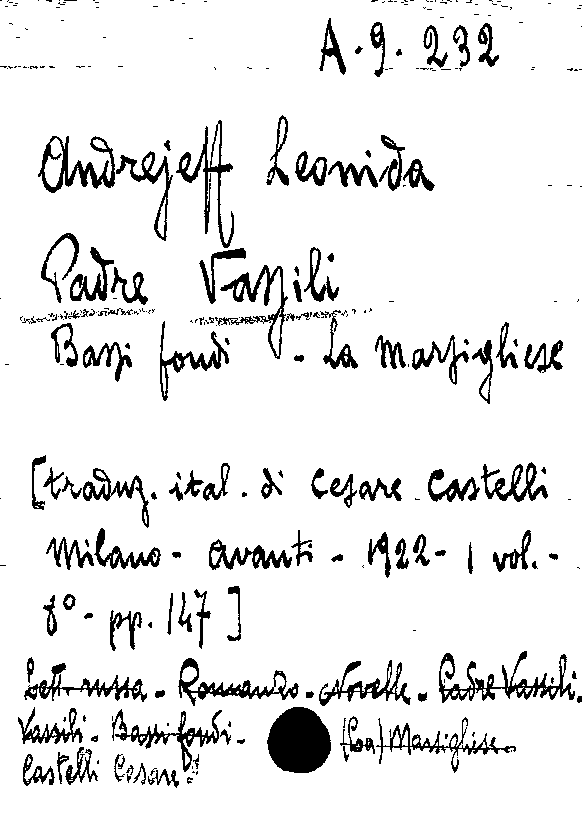 A. 9. 232
Andrejeff Leonida
Padre Vassili
Bassi fondi - La Marsigliese
[traduz. ital. di Cesare Castelli
Milano - Avanti - 1922 - 1 vol. -
8° - pp. 147]
Lett. russa - Romanzo - Novelle - Padre Vassili.
Vassili - Bassi fondi - (La) Marsigliese -
Castelli Cesare